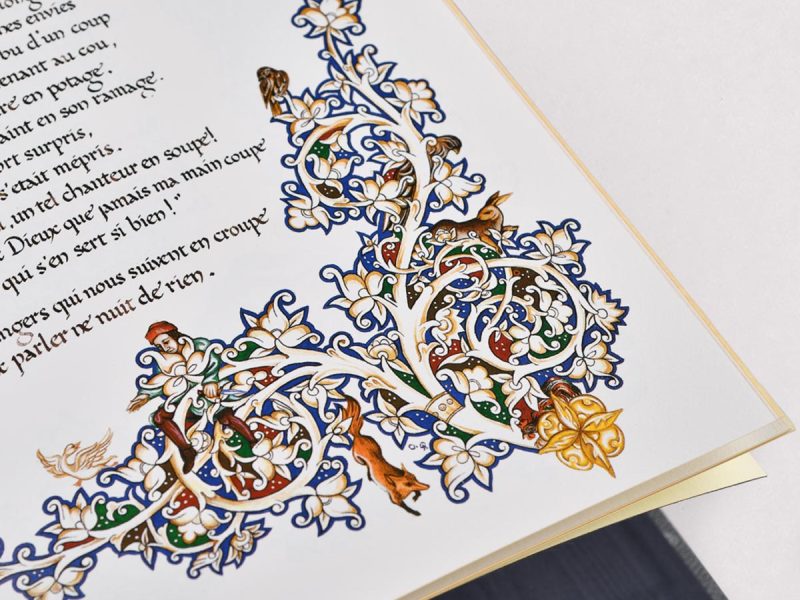 nes envies
bu d'un coup
enant au cou,
re en potage.
aint en son ramage.
ort surpris,
s'était mépris.
un tel chanteur en soupe!
Dieux que jamais ma main coupe
qui s'en sert si bien!"
ngers qui nous suivent en croupe
parler ne nuit de rien.